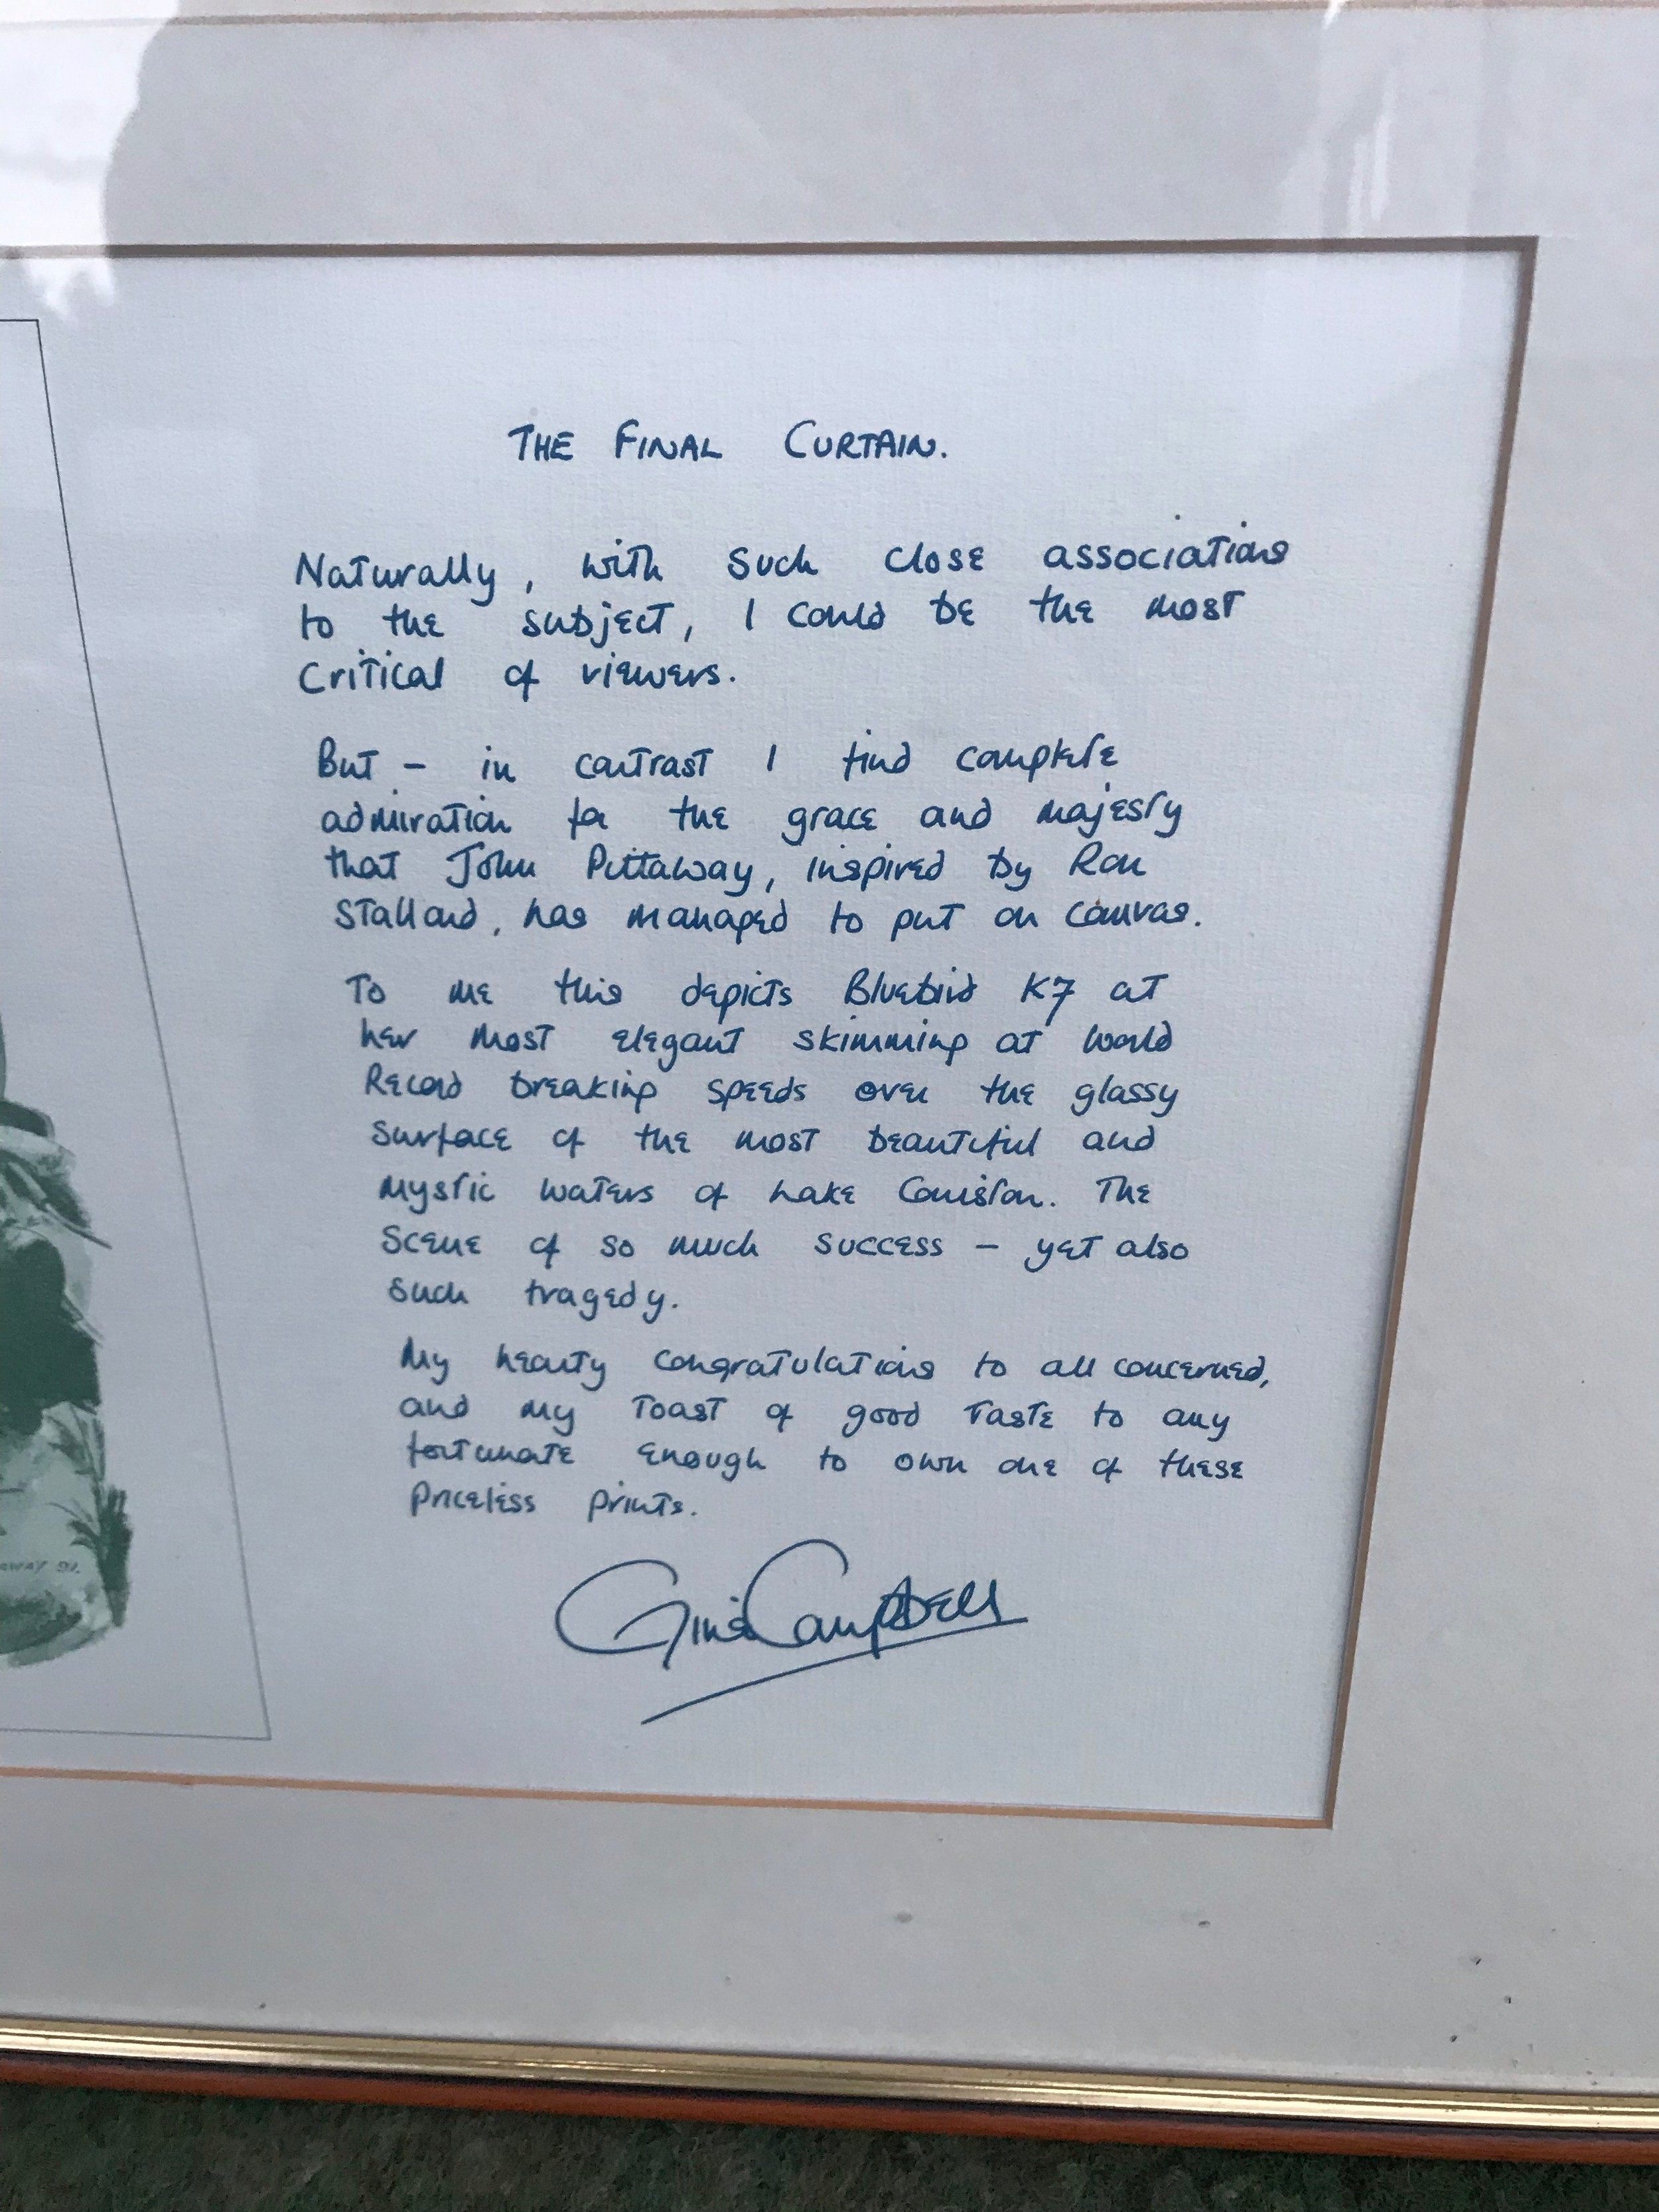 THE FINAL CURTAIN.
Naturally, with such close associations
to the subject, I could be the most
critical of viewers.
But - in contrast I find complete
admiration for the grace and majesty
that John Pittaway, inspired by Ron
Stallard, has managed to put on canvas.
To me this depicts Bluebird K7 at
her most elegant skimming at World
Record breaking speeds over the glassy
surface of the most beautiful and
mystic waters of Lake Coniston. The
scene of so much success - yet also
such tragedy.
My hearty congratulations to all concerned,
and my toast of good taste to any
fortunate enough to own one of these
priceless prints.
AWAY 91.
Gina Campbell